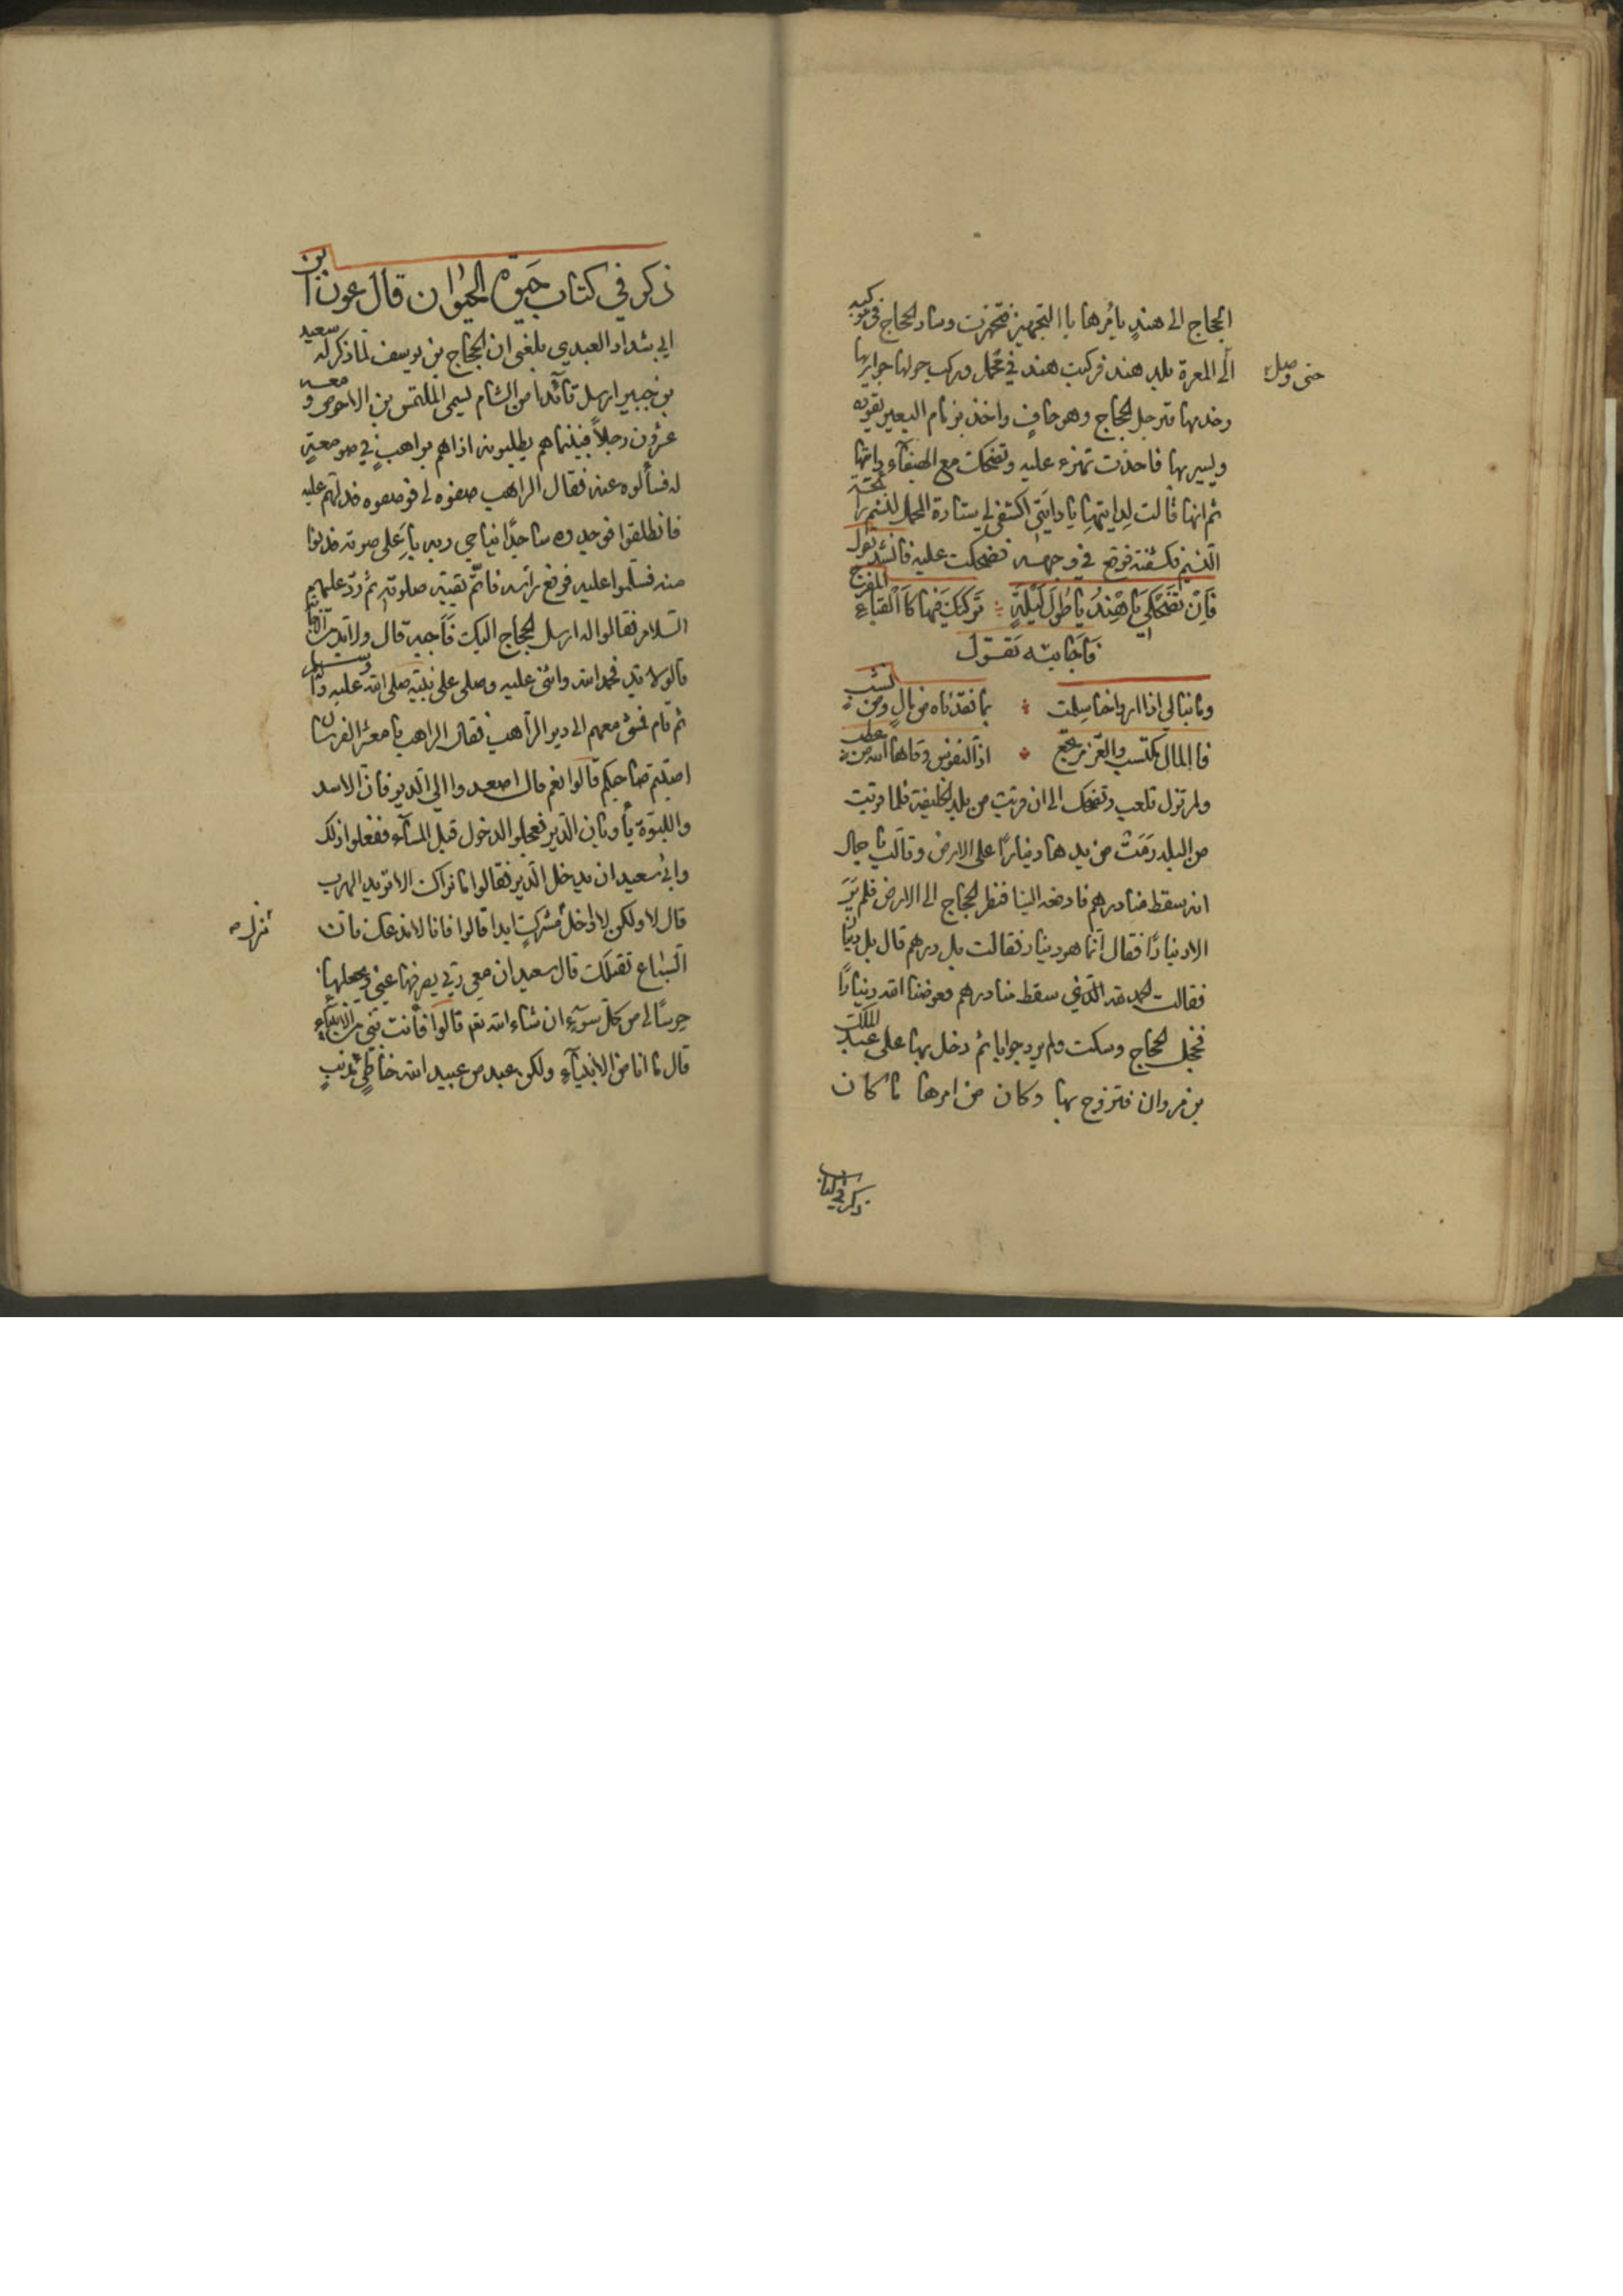 الحجاج الى هندٍ يأمرها باالتجهيز فتجهزت وسار الحجاج في موكبه
حتى وصل الى المعرة بلد هند فركبت هند في محمل وركب حولها جواريها
وخدمها فترجل الحجاج وهو حافٍ واخذ بزمام البعير يقوده
ويسير بها فاخذت تهزء عليه وتضحك مع الهيفآء دايتها
ثم انها قالت لدايتها يا دايتي اكشفي لي ستارة المحمل لنشم رائحة
النسيم فكشفته فوقع في وجهه فضحكت عليه فانشد يقول
فَاِنْ تَضْحَكي يَا هِنْدُ يا طُولَ لَيْلَةٍ تَركتكِ فيها كَالْقباءِ المفرج
فَاَجَابته تقول
وما نبالي اذا ارواحنا سلمت بما فقدناه من مالٍ ومن نشب
فاالمال مكتسب والعز مرتجع اذا النفوس وقاها الله من عطب
ولم تزل تلعب وتضحك الى ان قربت من بلد الخليفة فلما قربت
من البلد رَمَتْ من يدها دينارًا على الارض وقالت يا جمال
انه سقط منا درهم فادفعه الينا فنظر الحجاج الى الارض فلم يَرَ
الا دينارًا فقال انما هو دينار فقالت بل درهم قال بل دينار
فقالت الحمد لله الذي سقط منا درهم فعوضنا الله دينارًا
فخجل الحجاج وسكت ولم يرد جوابا ثم دخل بها على عبد الملك
بن مروان فتزوج بها وكان من امرها ما كان
ذكر في كتاب
ذكر في كتاب حيوة الحيوان قال عون ابن
ابي شداد العبدي بلغني ان الحجاج بن يوسف لما ذكر له سعيد
بن جبير ارسل قائدا من الشام يسمى الملتمس بن الاحوص ومعه
عشرون رجلاً فبينما هم يطلبونه اذا هم براهبٍ في صومعةٍ
له فسألوه عنه فقال الراهب صفوه لي فوصفوه فدلهم عليه
فانطلقوا فوجدوه ساجدًا يناجي ربه باَعلى صوته فدنوا
منه فسلموا عليه فرفع رأسه فاتمّ بقية صلوته ثم ردّ عليهم
السلام فقالوا له ارسل الحجاج اليك فَاَجبه قال ولا بد من الاجابة
قالو لا بد فحمد الله واثنى عليه وصلى على نبيّه صلى الله عليه وسلم
ثم قام فمشى معهم الى دير الراهب فقال الراهب يا معشر الفرسان
اصبتم صاحبكم قالوا نعم قال اصعدوا الى الدير فان الاسد
واللبوَة يأويان الدير فعجلو الدخول قبل المسآء ففعلوا ذلك
وابى سعيد ان يدخل الدير فقالوا ما نراك الا تريد الهرب
قال لا ولكن لا ادخل منزله مشركٍ ابدا قالوا فانا لا ندعك فان
السباع تقتلك قال سعيد ان معي ربّي يصرفها عني ويجعلها
حرسًا لي من كل سوءٍ ان شاء الله تعم قالوا فأنت نبي من الانبيآءِ
قال ما انا من الانبيآءِ ولكن عبد من عبيد الله خاطئٍ مذنبٍ